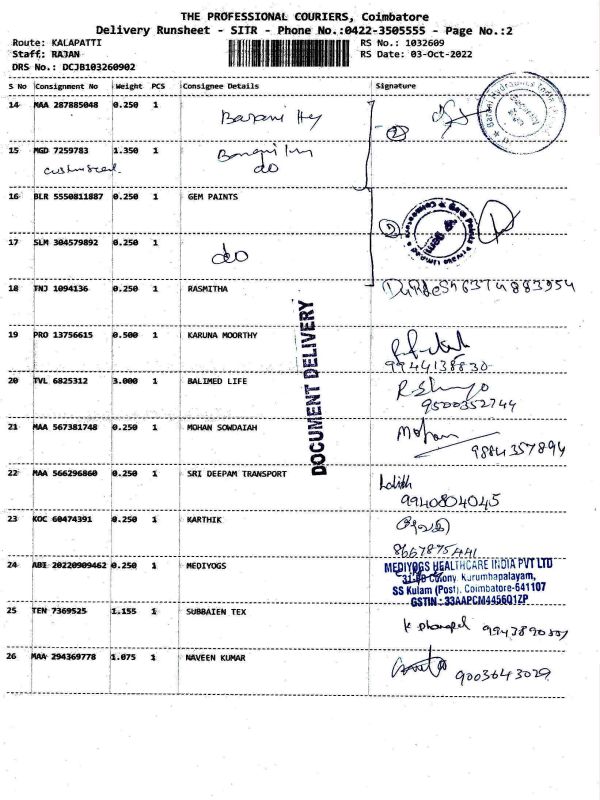 THE PROFESSIONAL COURIERS, Coimbatore
Delivery Runsheet - SITR - Phone No.:0422-3505555 - Page No.:2
Route: KALAPATTI RS No.: 1032609
Staff: RAJAN RS Date: 03-Oct-2022
DRS No.: DCJB103260902
S No Consignment No Weight PCS Consignee Details Signature
14 MAA 287885048 0.250 1
15 MGD 7259783 1.350 1
do
16 BLR 5550811887 0.250 1 GEM PAINTS
17 SLM 304579892 0.250 1 do
18 TNJ 1094136 0.250 1 RASMITHA 6374883954
19 PRO 13756615 0.500 1 KARUNA MOORTHY
9944138830
20 TVL 6825312 3.000 1 BALIMED LIFE
9500352744
21 MAA 567381748 0.250 1 MOHAN SOWDAIAH Mohan
9884357894
22 MAA 566296860 0.250 1 SRI DEEPAM TRANSPORT Lalith
9940804045
23 KOC 60474391 0.250 1 KARTHIK
8667875441
24 ABI 20220909462 0.250 1 MEDIYOGS
MEDIYOGS HEALTHCARE INDIA PVT LTD
Colony, Kurumhapalayam,
SS Kulam (Post), Coimbatore-641107
GSTIN : 33AAPCM4456Q1ZP
25 TEN 7369525 1.155 1 SUBBAIEN TEX
26 MAA 294369778 1.075 1 NAVEEN KUMAR 9003643029
DOCUMENT DELIVERY